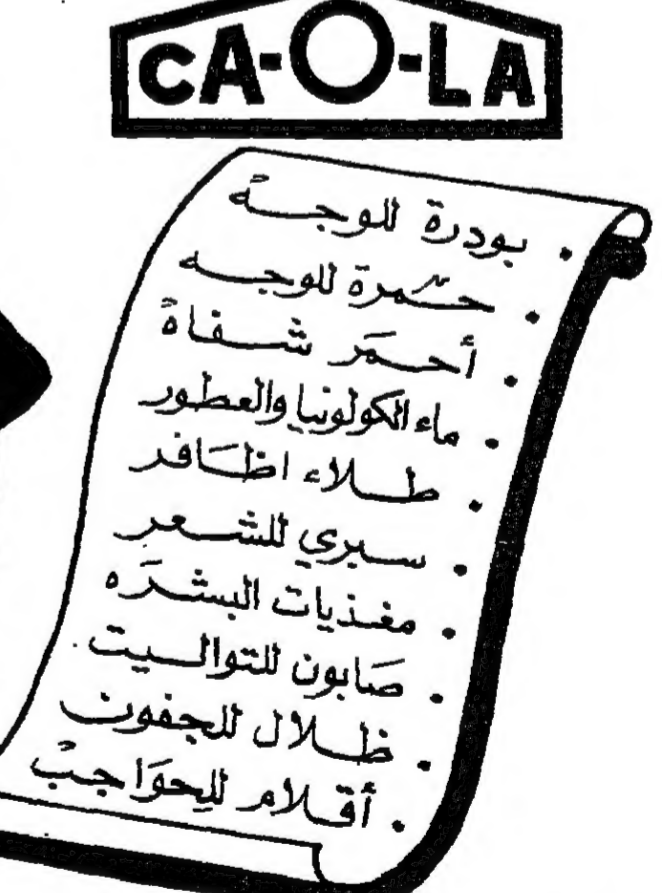 CA-O-LA
• بودرة للوجه
• حمرة للوجه
• أحمر شفاه
• ماء الكولونيا والعطور
• طلاء اظافر
• سبري للشعر
• مغذيات البشره
• صابون للتواليت
• ظلال للجفون
• أقلام للحواجب